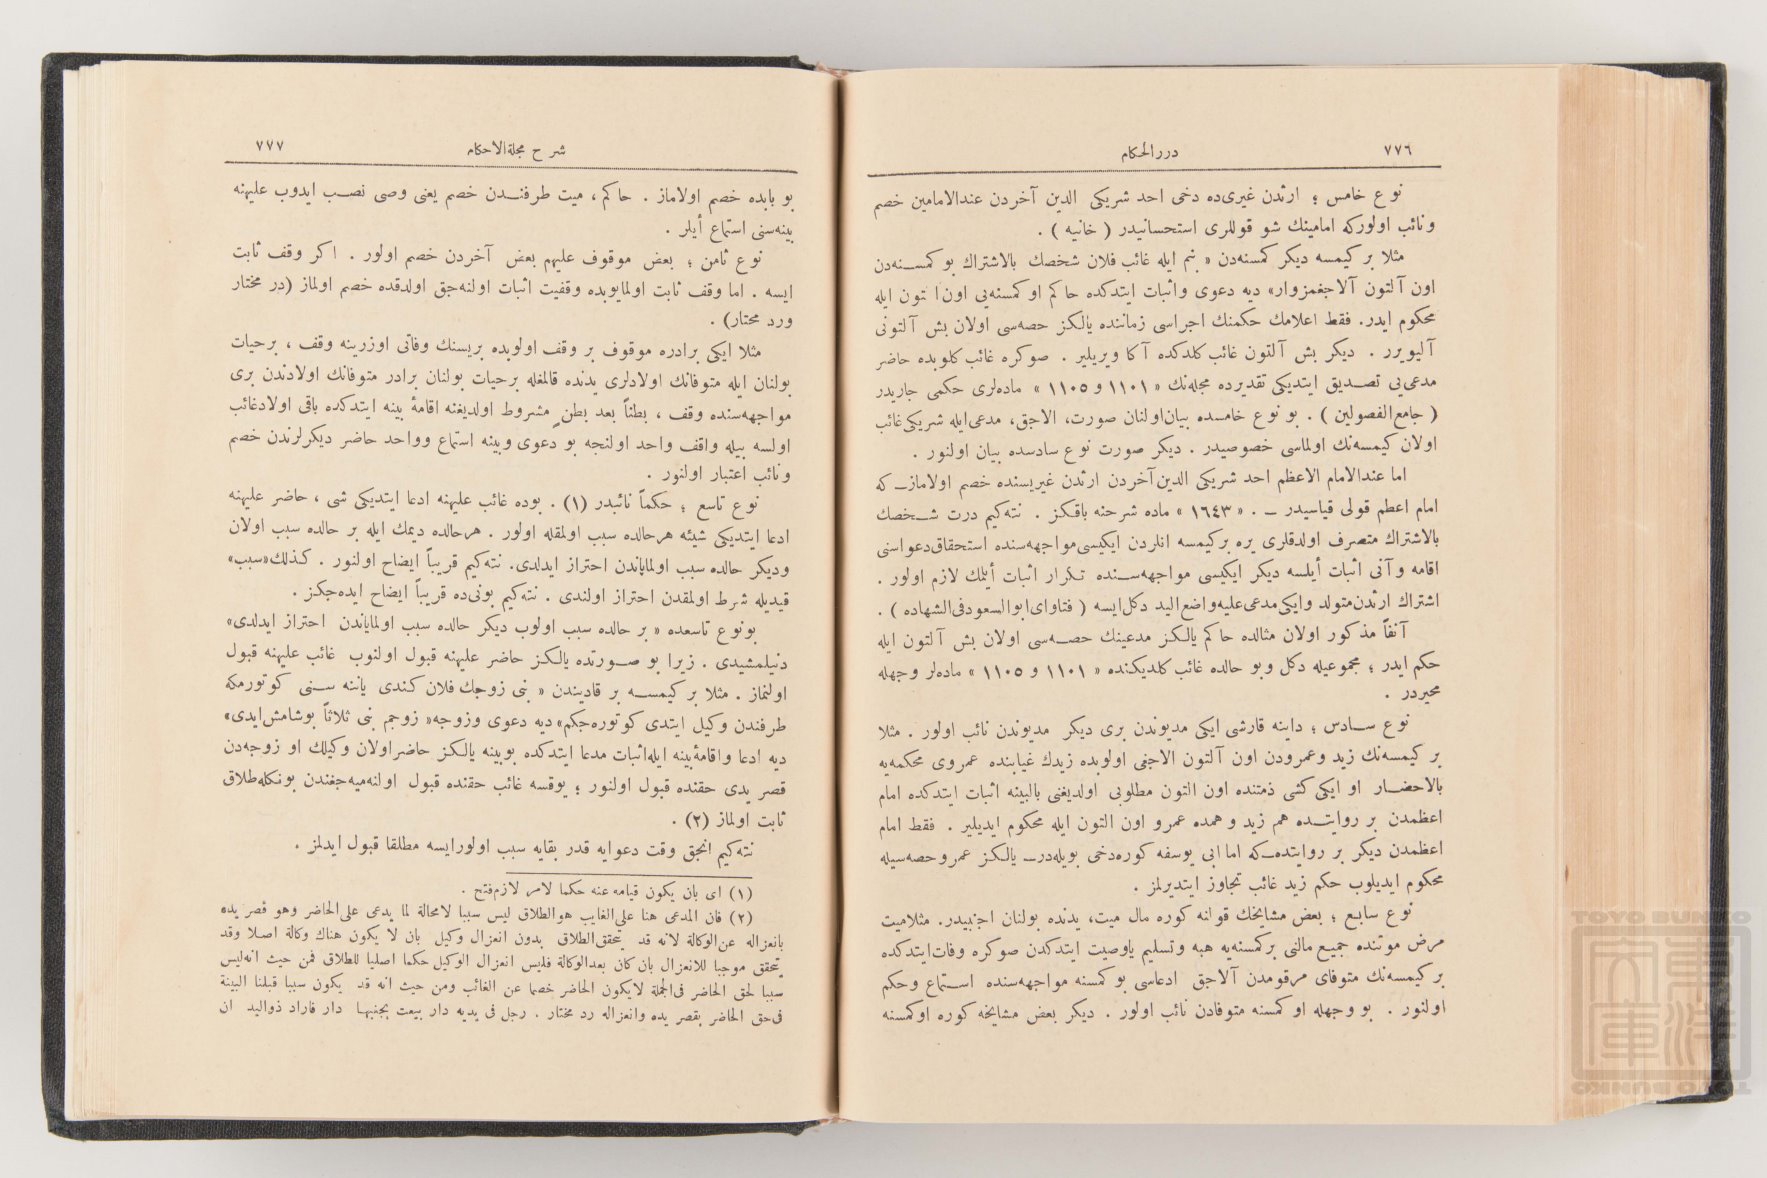 ٧٧٦
دررالحكام
نوع خامس ؛ ارثدن غیری‌ده دخی احد شریكی الدین آخردن عندالامامین خصم
ونائب اولوركه امامینك شو قوللری استحسانیدر ( خانیه ) .
مثلا بر كیمسه دیكر كمسنه‌دن « بنم ایله غائب فلان شخصك بالاشتراك بو كمسنه‌دن
اون آلتون آلاجغمزوار» دیه دعوی واثبات ایتدكده حاكم او كمسنه‌یی اون التون ایله
محكوم ایدر. فقط اعلامك حكمنك اجراسی زماننده یالكز حصه‌سی اولان بش آلتونی
آلیویرر . دیكر بش آلتون غائب كلدكده آكا ویریلیر . صوكره غائب كلوبده حاضر
مدعی‌یی تصدیق ایتدیكی تقدیرده مجله‌نك « ١١٠١ و ١١٠٥ » ماده‌لری حكمی جاریدر
( جامع‌الفصولین ) . بو نوع خامسده بیان‌اولنان صورت، الاجق، مدعی‌ایله شریكی غائب
اولان كیمسه‌نك اولماسی خصوصیدر . دیكر صورت نوع سادسده بیان اولنور .
اما عندالامام الاعظم احد شریكی الدین آخردن ارثدن غیریسنده خصم اولاماز ـ كه
امام اعظم قولی قیاسیدر ـ . « ١٦٤٣ » ماده شرحنه باقكز . نته‌كیم درت شخصك
بالاشتراك متصرف اولدقلری یره بركیمسه انلردن ایكیسی‌مواجهه‌سنده استحقاق‌دعواسنی
اقامه و آنی اثبات أیلسه دیكر ایكیسی مواجهه‌سنده تكرار اثبات أیلمك لازم اولور .
اشتراك ارثدن‌متولد وایكی‌مدعی‌علیه‌واضع‌الید دكل‌ایسه ( فتاوای‌ابوالسعودفی‌الشهاده ) .
آنفاً مذكور اولان مثالده حاكم یالكز مدعینك حصه‌سی اولان بش آلتون ایله
حكم ایدر ؛ مجموعیله دكل وبو حالده غائب كلدیكنده « ١١٠١ و ١١٠٥ » ماده‌لر وجهله
مخیردر .
نوع سادس ؛ داینه قارشی ایكی مدیوندن بری دیكر مدیوندن نائب اولور . مثلا
بر كیمسه‌نك زید وعمرودن اون آلتون الاجغی اولوبده زیدك غیابنده عمروی محكمه‌یه
بالاحضار او ایكی كشی ذمتنده اون التون مطلوبی اولدیغنی بالبینه اثبات ایتدكده امام
اعظمدن بر روایتده هم زید و همده عمرو اون التون ایله محكوم ایدیلیر . فقط امام
اعظمدن دیكر بر روایتده‌ـ كه اما ابی یوسفه كوره‌دخی بویله‌در‌ـ یالكز عمروحصه‌سیله
محكوم ایدیلوب حكم زید غائب تجاوز ایتدیرلمز .
نوع سابع ؛ بعض مشایخك قوانه كوره مال میت، یدنده بولنان اجنبیدر. مثلامیت
مرض موتنده جمیع مالنی بركمسنه‌یه هبه وتسلیم یاوصیت ایتدكدن صوكره وفات‌ایتدكده
بر كیمسه‌نك متوفای مرقومدن آلاجق ادعاسی بو كمسنه مواجهه‌سنده استماع وحكم
اولنور . بو وجهله او كمسنه متوفادن نائب اولور . دیكر بعض مشایخه كوره اوكمسنه
شرح مجلةالاحكام
٧٧٧
بو بابده خصم اولاماز . حاكم ، میت طرفندن خصم یعنی وصی نصب ایدوب علیهنه
بینه‌سنی استماع أیلر .
نوع ثامن ؛ بعض موقوف علیهم بعض آخردن خصم اولور . اكر وقف ثابت
ایسه . اما وقف ثابت اولمایوبده وقفیت اثبات اولنه‌جق اولدقده خصم اولماز (در مختار
ورد محتار) .
مثلا ایكی برادره موقوف بر وقف اولوبده بریسنك وفاتی اوزرینه وقف ، برحیات
بولنان ایله متوفانك اولادلری یدنده قالمغله برحیات بولنان برادر متوفانك اولادندن بری
مواجهه‌سنده وقف ، بطناً بعد بطن مشروط اولدیغنه اقامهٔ بینه ایتدكده باقی اولادغائب
اولسه بیله واقف واحد اولنجه بو دعوی وبینه استماع وواحد حاضر دیكرلرندن خصم
ونائب اعتبار اولنور .
نوع تاسع ؛ حكماً نائبدر (١) . بوده غائب علیهنه ادعا ایتدیكی شی ، حاضر علیهنه
ادعا ایتدیكی شیئه هرحالده سبب اولمقله اولور . هرحالده دیمك ایله بر حالده سبب اولان
ودیكر حالده سبب اولمایاندن احتراز ایدلدی. نته‌كیم قریباً ایضاح اولنور . كذلك«سبب»
قیدیله شرط اولمقدن احتراز اولندی . نته‌كیم بونی‌ده قریباً ایضاح ایده‌جكز .
بونوع تاسعده « بر حالده سبب اولوب دیكر حالده سبب اولمایاندن احتراز ایدلدی»
دنیلمشیدی . زیرا بو صورتده یالكز حاضر علیهنه قبول اولنوب غائب علیهنه قبول
اولنماز . مثلا بر كیمسه بر قادیندن « بنی زوجك فلان كندی یاننه سنی كوتورمكه
طرفندن وكیل ایتدی كوتوره‌جكم» دیه دعوی وزوجه« زوجم بنی ثلاثاً بوشامش‌ایدی»
دیه ادعا واقامهٔ‌بینه ایله‌اثبات مدعا ایتدكده بوبینه یالكز حاضراولان وكیلك او زوجه‌دن
قصر یدی حقنده قبول اولنور ؛ یوقسه غائب حقنده قبول اولنه‌میه‌جغندن بونكله‌طلاق
ثابت اولماز (٢) .
نته‌كیم انجق وقت دعوایه قدر بقایه سبب اولورایسه مطلقا قبول ایدلمز .
(١) ای بان یكون قیامه عنه حكما لامر لازم‌فتح .
(٢) فان المدعی هنا علی‌الغایب هوالطلاق لیس سببا لامحالة لما یدعی علی‌الحاضر وهو قصر یده
بانعزاله عن‌الوكالة لانه قد یتحقق‌الطلاق بدون انعزال وكیل بان لا یكون هناك وكالة اصلا وقد
یتحقق موجبا للانعزال بان كان بعدالوكالة فلیس انعزال الوكیل حكما اصلیا للطلاق فمن حیث انه‌لیس
سببا لحق الحاضر فی‌الجملة لایكون الحاضر خصما عن الغائب ومن حیث انه قد یكون سببا قبلنا البینة
فی‌حق الحاضر بقصر یده وانعزاله رد محتار . رجل فی یدیه دار بیعت بجنبها دار فاراد ذوالید ان
TOYO BUNKO